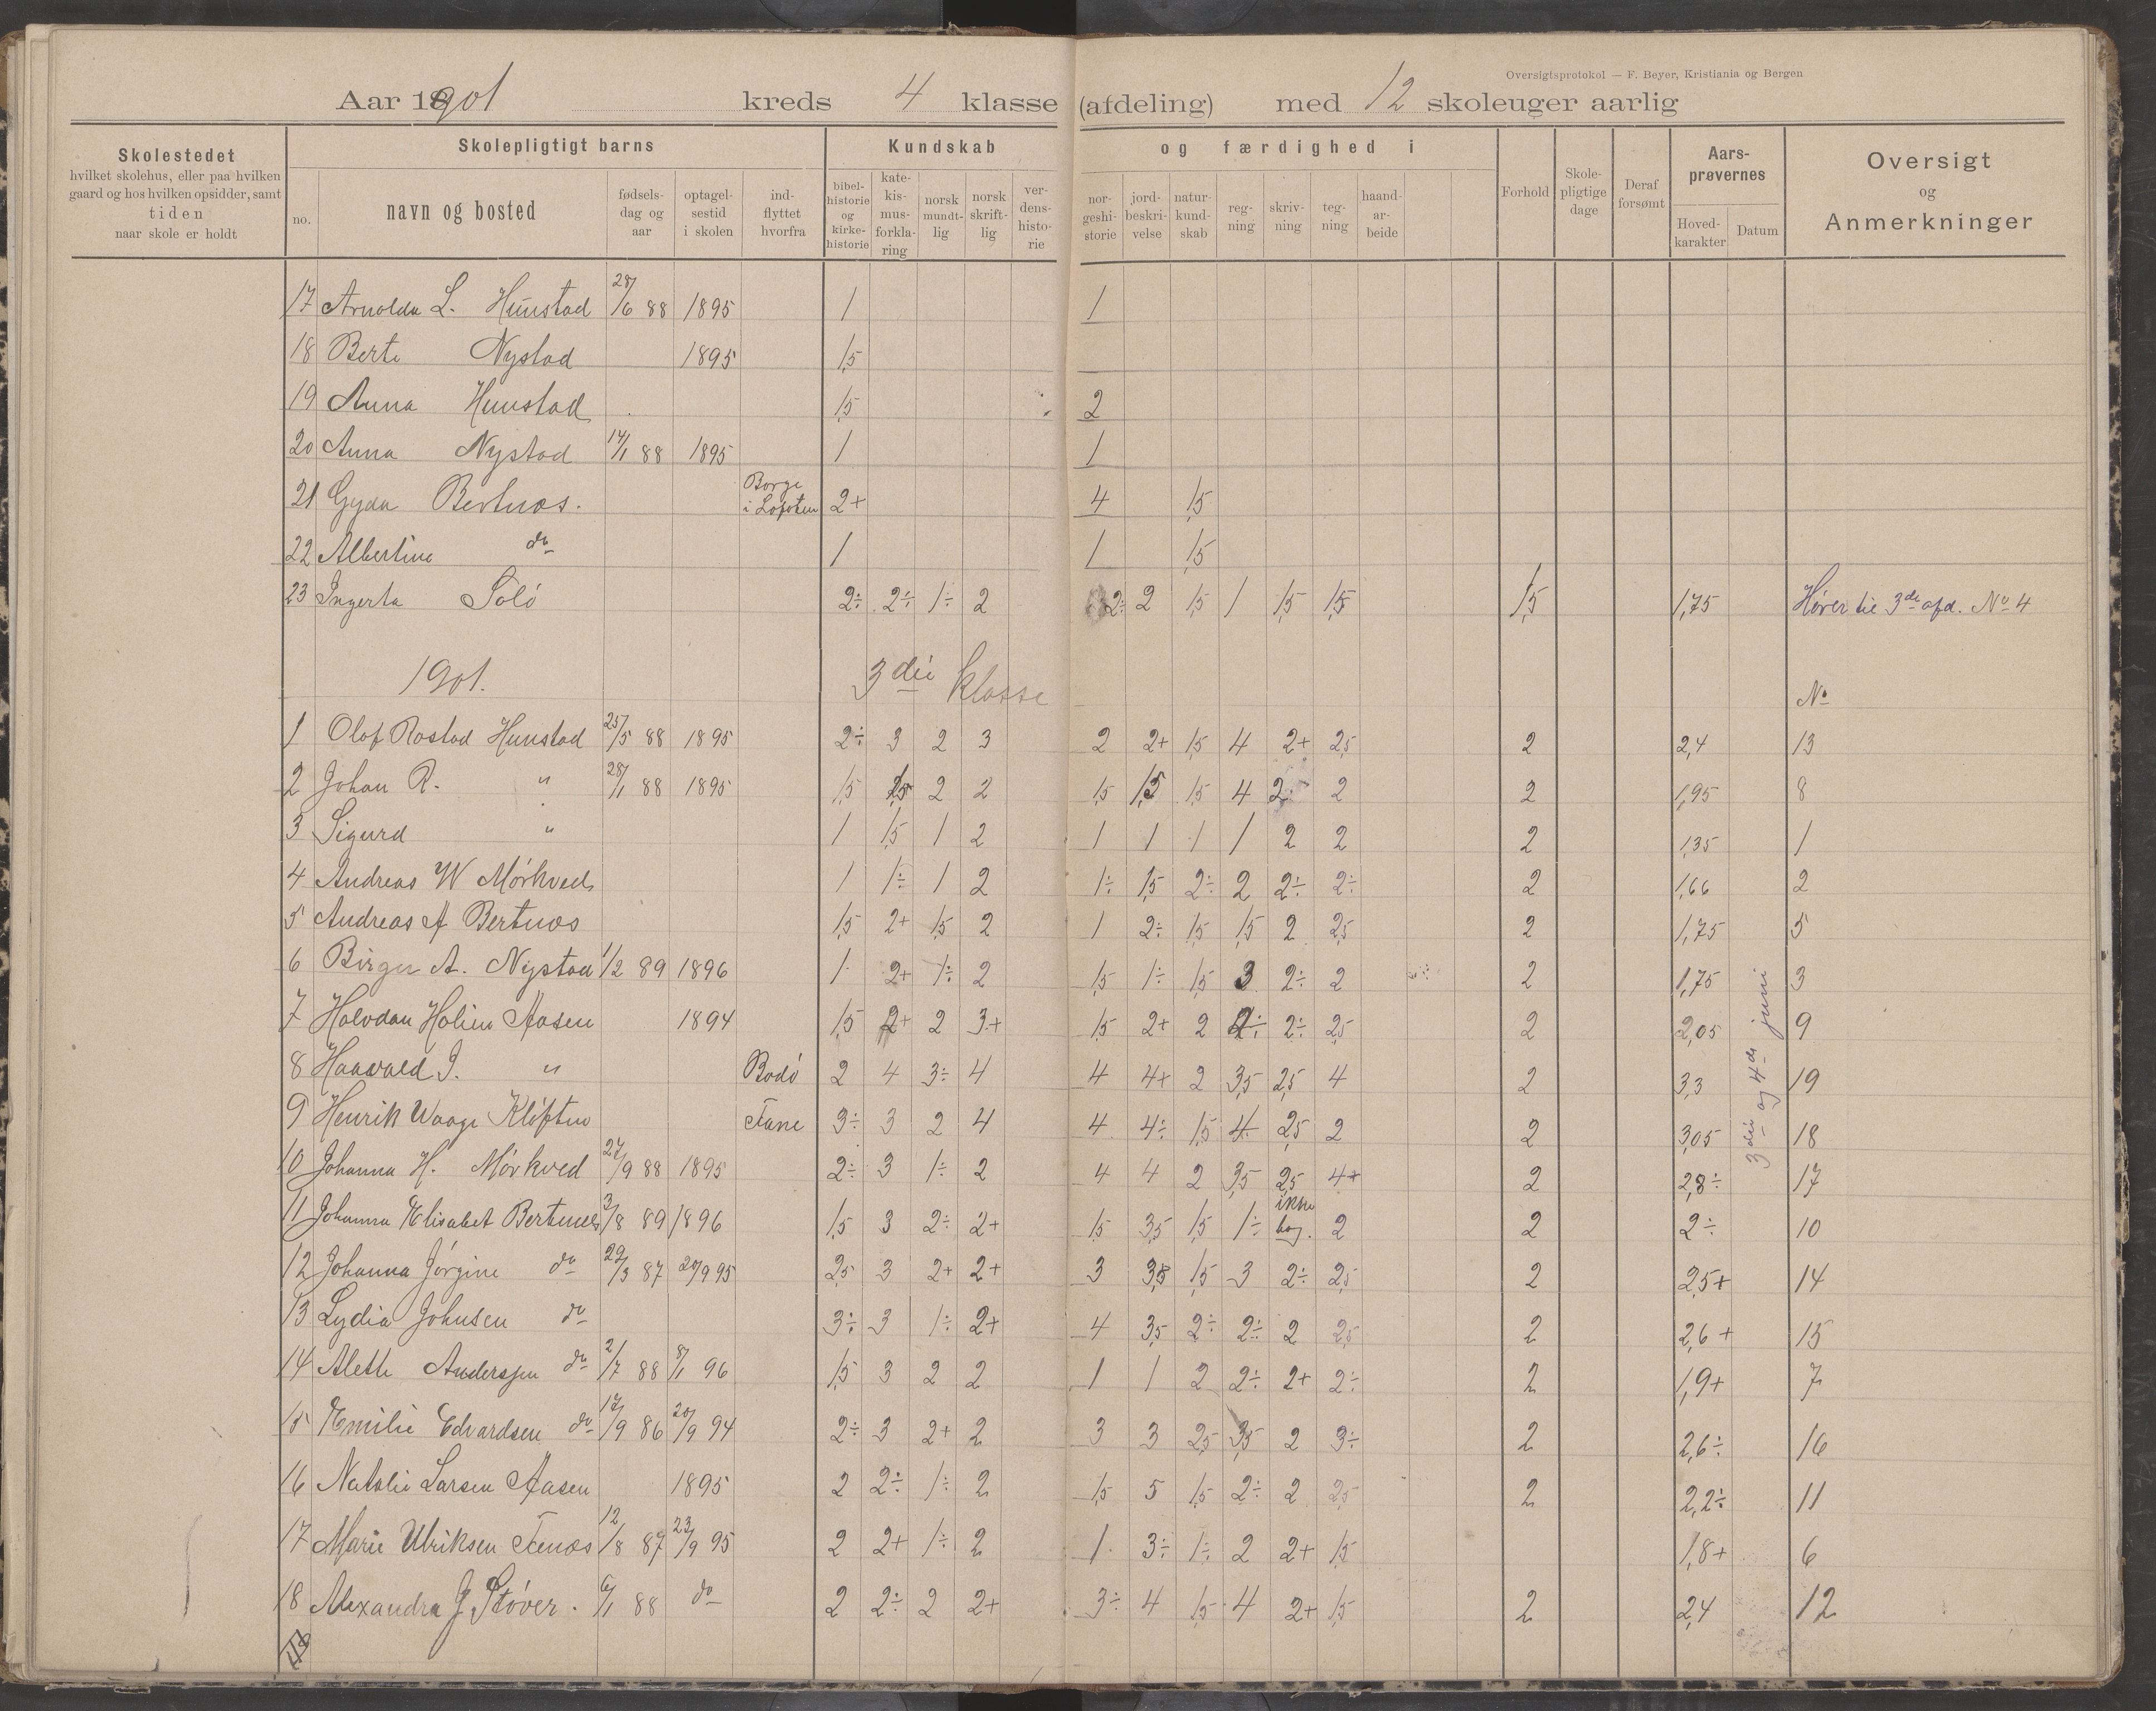 Oversigtsprotokol — F. Beyer, Kristiania og Bergen
Aar 1901 kreds 4 klasse (afdeling) med 12 skoleuger aarlig
Skolestedet
hvilket skolehus, eller paa hvilken
gaard og hos hvilken opsidder, samt
tiden
naar skole er holdt
Skolepligtigt barns
no.
navn og bosted
fødsels-
dag og
aar
optagel-
sestid
i skolen
ind-
flyttet
hvorfra
Kundskab og færdighed i
bibel-
historie
og
kirke-
historie
kate-
kis-
mus-
forkla-
ring
norsk
mundt-
lig
norsk
skrift-
lig
ver-
dens-
histo-
rie
nor-
geshi-
storie
jord-
beskri-
velse
natur-
kund-
skab
reg-
ning
skriv-
ning
teg-
ning
haand-
ar-
beide
Forhold
Skole-
pligtige
dage
Deraf
forsømt
Aars-
prøvernes
Hoved-
karakter
Datum
Oversigt
og
Anmerkninger
17 Arnolda L. Hunstad 28/6 88 1895 1 1
18 Berte Nystad 1895 1,5
19 Anna Hunstad 1,5 2
20 Anna Nystad 14/1 88 1895 1 1
21 Gyda Bertnæs. Borge i Lofoten 2+ 4 1,5
22 Albertine do 1 1 1,5
23 Ingerta Sölö 2÷ 2÷ 1÷ 2 2÷ 2 1,5 1 1,5 1,5 1,5 1,75 Hører til 3die afd. No 4
1901. 3die klasse No
1 Olaf Rostad Hunstad 25/5 88 1895 2÷ 3 2 3 2 2+ 1,5 4 2+ 2,5 2 2,4 13
2 Johan R. " 28/1 88 1895 1,5 2,5 2 2 1,5 1,5 1,5 4 2 2 2 1,95 8
3 Sigurd " 1 1,5 1 2 1 1 1 1 2 2 2 1,35 1
4 Andreas W Mørkved 1 1÷ 1 2 1÷ 1,5 2÷ 2 2÷ 2÷ 2 1,66 2
5 Andreas A Bertnæs 1,5 2+ 1,5 2 1 2÷ 1,5 1,5 2 2,5 2 1,75 5
6 Birger A. Nystad 1/2 89 1896 1 2+ 1÷ 2 1,5 1÷ 1,5 3 2÷ 2 2 1,75 3
7 Halvdan Holien Aasen 1894 1,5 2+ 2 3+ 1,5 2+ 2 2÷ 2÷ 2,5 2 2,05 9
8 Haavald I. " Bodö 2 4 3÷ 4 4 4+ 2 3,5 2,5 4 2 3,3 19
9 Henrik Waage Kløften Fane 3÷ 3 2 4 4 4÷ 1,5 4 2,5 2 2 3,05 18
3die og 4de juni
10 Johanna H. Mörkved 27/9 88 1895 2÷ 3 1÷ 2 4 4 2 3,5 2,5 4+ 2 2,8÷ 17
11 Johanna Elisabet Bertnæs 3/8 89 1896 1,5 3 2÷ 2+ 1,5 3,5 1,5 1÷ ikke bog. 2 2 2÷ 10
12 Johanna Jörgine do 29/3 87 20/9 95 2,5 3 2+ 2+ 3 3,5 1,5 3 2÷ 2,5 2 2,5+ 14
13 Lydia Johnsen do 3÷ 3 1÷ 2+ 4 3,5 2÷ 2÷ 2 2,5 2 2,6+ 15
14 Aleth Anderssen do 2/7 88 8/1 96 1,5 3 2 2 1 1 2 2÷ 2+ 2÷ 2 1,9+ 7
15 Emilie Edvardsen do 17/9 86 20/9 94 2÷ 3 2+ 2 3 3 2,5 3,5 2 3÷ 2 2,6÷ 16
16 Natalie Larsen Aasen 1895 2 2÷ 1÷ 2 1,5 5 1,5 2÷ 2 2,5 2 2,2÷ 11
17 Marie Ulriksen Fenæs 12/8 87 23/9 95 2 2+ 1÷ 2 1 3÷ 1÷ 2 2+ 1,5 1,8+ 6
18 Alexandra J Støver. 6/1 88 do 2 2÷ 2 2+ 3÷ 4 1,5 4 2+ 1,5 2 2,4 12